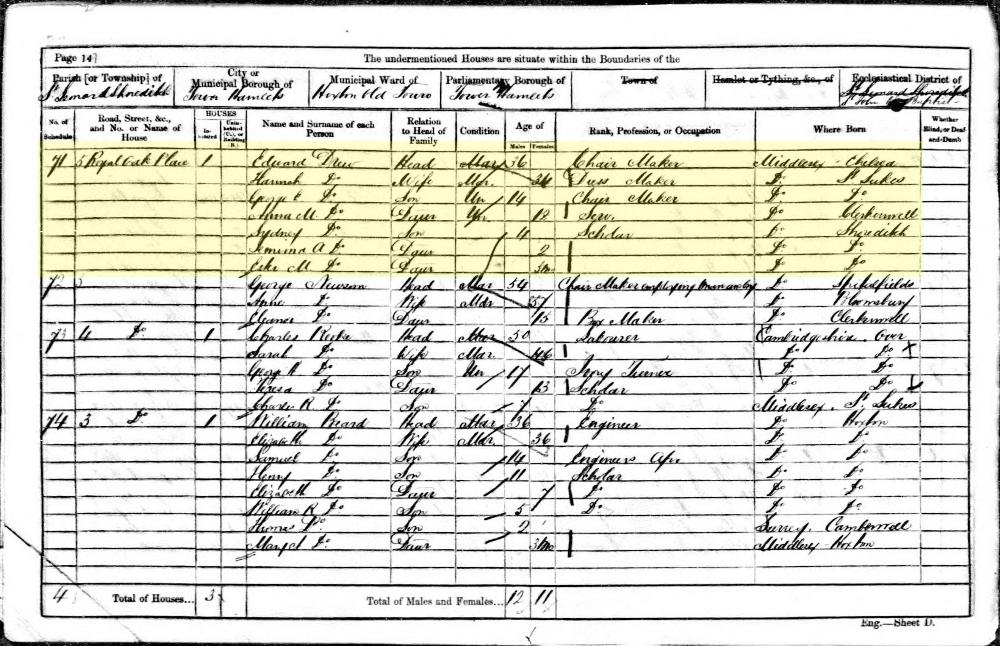 Page 14
The undermentioned Houses are situate within the Boundaries of the
Parish [or Township] of City or Municipal Borough of Municipal Ward of Parliamentary Borough of Town of Hamlet or Tything, &c., of Ecclesiastical District of
St Leonard Shoreditch Tower Hamlets Hoxton Old Town Tower Hamlets St Leonard Shoreditch
St John Baptist
No. of Schedule Road, Street, &c., and No. or Name of House HOUSES Inhabited Uninhabited (U.), or Building (B.) Name and Surname of each Person Relation to Head of Family Condition Age of Males Females Rank, Profession, or Occupation Where Born Whether Blind, or Deaf-and-Dumb
71 5 Royal Oak Place 1 Edward Drew Head Mar 36 Chair Maker Middlesex Chelsea
Hannah Do Wife Mar 36 Dress Maker Do St Lukes
George Do Son Un 14 Chair Maker Do Do
Anna M. Do Daur Un 12 Serv. Do Clerkenwell
Sydney Do Son 4 Scholar Do Shoreditch
Jemima A Do Daur 2 Do Do
M. Do Daur 3mo Do Do
72 George Newson Head Mar 54 Chair Maker employing Do Spitalfields
Anne Do Wife Mar 57 Do Bloomsbury
Eleanor Do Daur 15 Box Maker Do Clerkenwell
73 4 Do 1 Charles Head Mar 50 Labourer Cambridgeshire Over
Sarah Do Wife Mar 46 Do Do
George Do Son Un 17 Ivory Turner Do Do
Teresa Do Daur 13 Scholar Do Do
Charles R. Do Son 7 Do Middlesex St Lukes
74 3 Do 1 William Beard Head Mar 36 Engineer Do Hoxton
Elizabeth Do Wife Mar 36 Do Do
Samuel Do Son 14 Engineers App Do Do
Henry Do Son 11 Scholar Do Do
Elizabeth Do Daur 7 Do Do Do
William R Do Son 5 Do Do Do
Thomas Do Son 2 Surrey Camberwell
Mary Do Daur 3mo Middlesex Hoxton
4 Total of Houses... 3 Total of Males and Females... 12 11
Eng.—Sheet D.